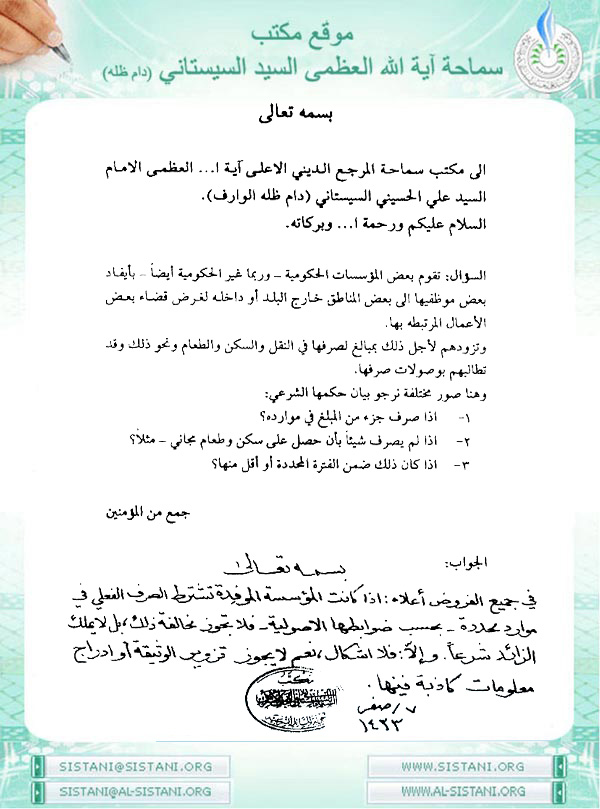 موقع مكتب
سماحة آية الله العظمى السيد السيستاني (دام ظله)
بسمه تعالى
الى مكتب سماحة المرجع الديني الاعلى آية ا... العظمى الامام
السيد علي الحسيني السيستاني (دام ظله الوارف).
السلام عليكم ورحمة ا... وبركاته.
السؤال: تقوم بعض المؤسسات الحكومية - وربما غير الحكومية أيضاً - بأيفاد
بعض موظفيها الى بعض المناطق خارج البلد أو داخله لغرض قضاء بعض
الأعمال المرتبطه بها.
وتزودهم لأجل ذلك بمبالغ لصرفها في النقل والسكن والطعام ونحو ذلك وقد
تطالبهم بوصولات صرفها.
وهنا صور مختلفة نرجو بيان حكمها الشرعي:
١- اذا صرف جزء من المبلغ في موارده؟
٢- اذا لم يصرف شيئاً بأن حصل على سكن وطعام مجاني - مثلاً؟
٣- اذا كان ذلك ضمن الفترة المحددة أو أقل منها؟
جمع من المؤمنين
الجواب:
بسمه تعالى
في جميع الفروض أعلاه: اذا كانت المؤسسة الموفِدة تشترط الصرف الفعلي في
موارد محددة - بحسب ضوابطها الاصولية - فلا يجوز مخالفة ذلك، بل لا يملك
الزائد شرعاً. وإلّا: فلا اشكال، نعم لا يجوز تزوير الوثيقة أو ادراج
معلومات كاذبة فيها.
مكتب
٧/صفر
١٤٢٣
SISTANI@SISTANI.ORG
WWW.SISTANI.ORG
SISTANI@AL-SISTANI.ORG
WWW.AL-SISTANI.ORG